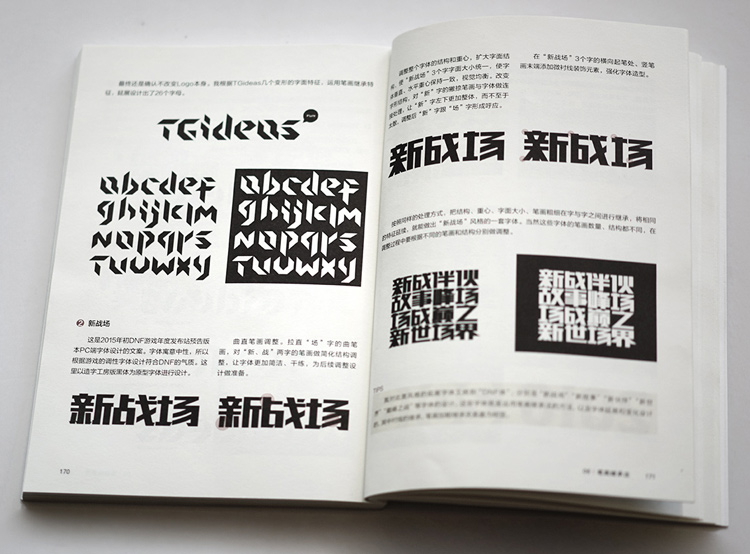 最终还是确认不改变Logo本身，我根据TGideas几个变形的字面特征，运用笔画继承特
征，延展设计出了26个字母。
TGideas
abcdef
ghijklm
nopqrs
tuvwxy
abcdef
ghijklm
nopqrs
tuvwxy
2 新战场
这是2015年初DNF游戏年度发布站预告版
本PC端字体设计的文案。字体寓意中性，所以
根据游戏的调性字体设计符合DNF的气质。这
里以造字工房版黑体为原型字体进行设计。
曲直笔画调整。拉直“场”字的曲笔
画。对“新、战”两字的笔画做简化结构调
整，让字体更加简洁、干练，为后续调整设
计做准备。
新战场
新战场
170
调整整个字体的结构和重心，扩大字面结
构，使“新战场”3个字字面大小统一，使字
体垂直、水平重心保持一致，视觉均衡。改变
字形结构，对“新”字的撇捺笔画与字体做连
接处理，让“新”字左下更加整体，而不至于
太散，调整后“新”字跟“场”字形成呼应。
在“新战场”3个字的横向起笔处、竖笔
画末端添加微衬线装饰元素，强化字体造型。
新战场
新战场
按照同样的处理方式，把结构、重心、字面大小、笔画粗细在字与字之间进行继承，将相同
的特征延续，就能做出“新战场”风格的一套字体。当然这些字体的笔画数量、结构都不同，在
调整过程中要根据不同的笔画和结构分别做调整。
新战伴伙
故事峰场
场战巅之
新世场界
新战伴伙
故事峰场
场战巅之
新世场界
TIPS
171